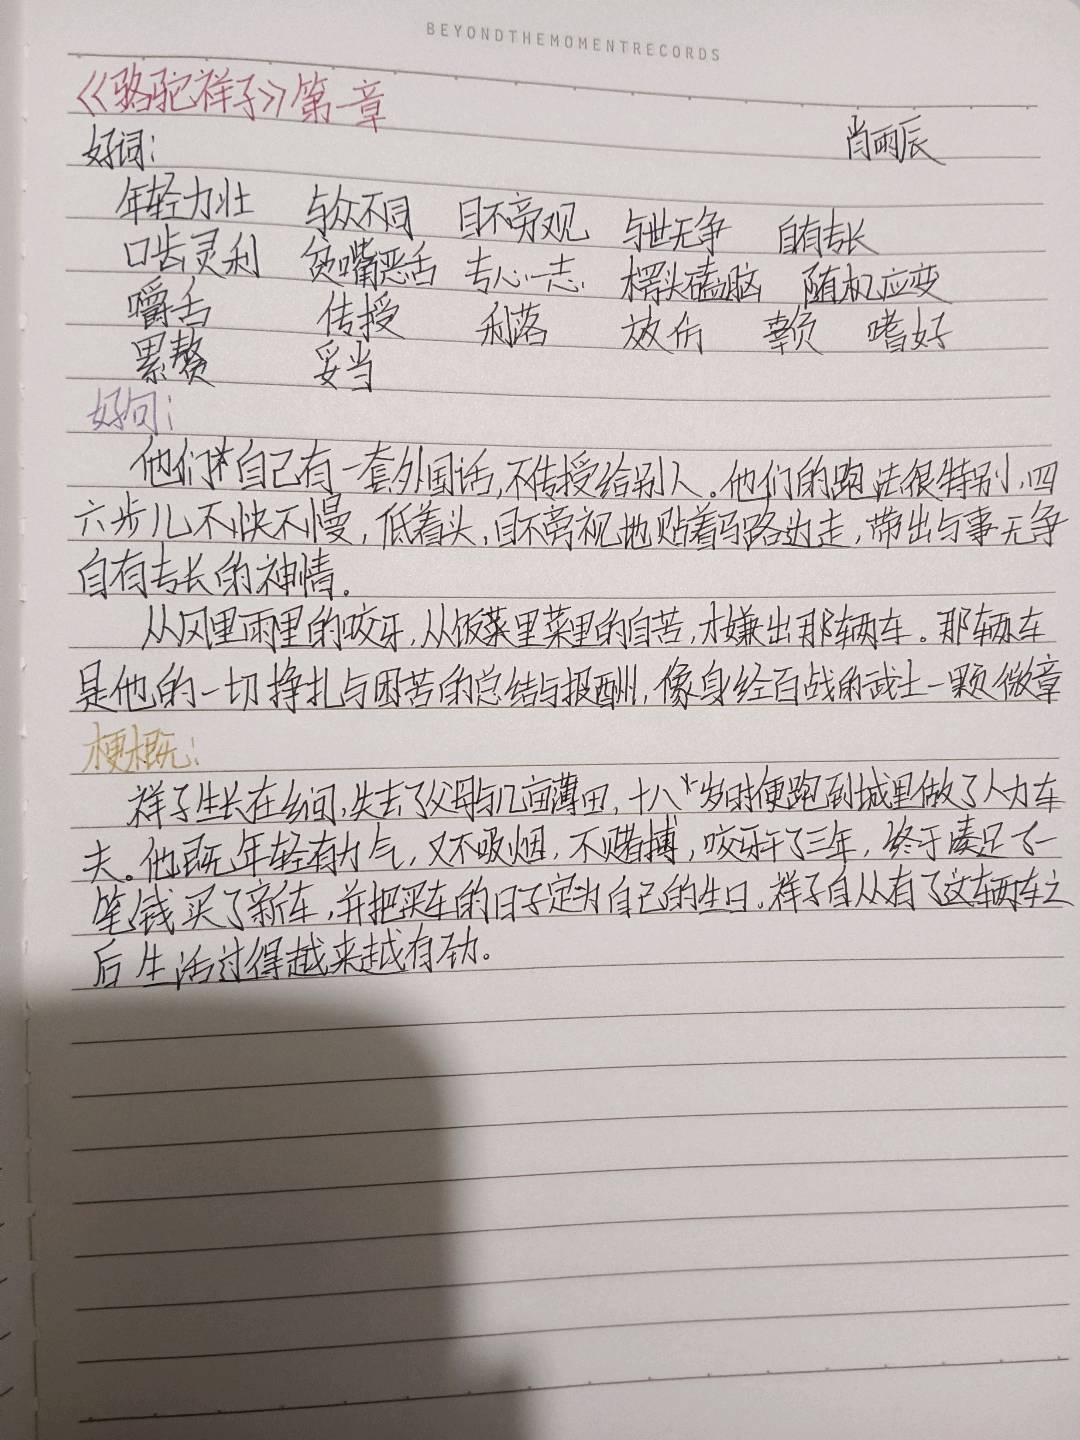 BEYONDTHEMOMENTRECORDS
《骆驼祥子》第一章
肖雨辰
好词:
年轻力壮 与众不同 目不旁观 与世无争 自有专长
口齿灵利 贫嘴恶舌 专心一志 楞头磕脑 随机应变
嚼舌 传授 利落 放份 辜负 嗜好
累赘 妥当
好句:
他们自己有一套外国话,不传授给别人。他们的跑法很特别,四
六步儿不快不慢,低着头,目不旁视地贴着马路边走,带出与事无争
自有专长的神情。
从风里雨里的咬牙,从饭菜里菜里的自苦,才嫌出那辆车。那辆车
是他的一切挣扎与困苦的总结与报酬,像身经百战的武士一颗微章
梗概:
祥子生长在乡间,失去了父母与几亩薄田,十八岁时便跑到城里做了人力车
夫。他既年轻有力气,又不吸烟,不赌搏,咬牙干了三年,终于凑足了一
笔钱买了新车,并把买车的日子定为自己的生日。祥子自从有了这辆车之
后生活过得越来越有劲。